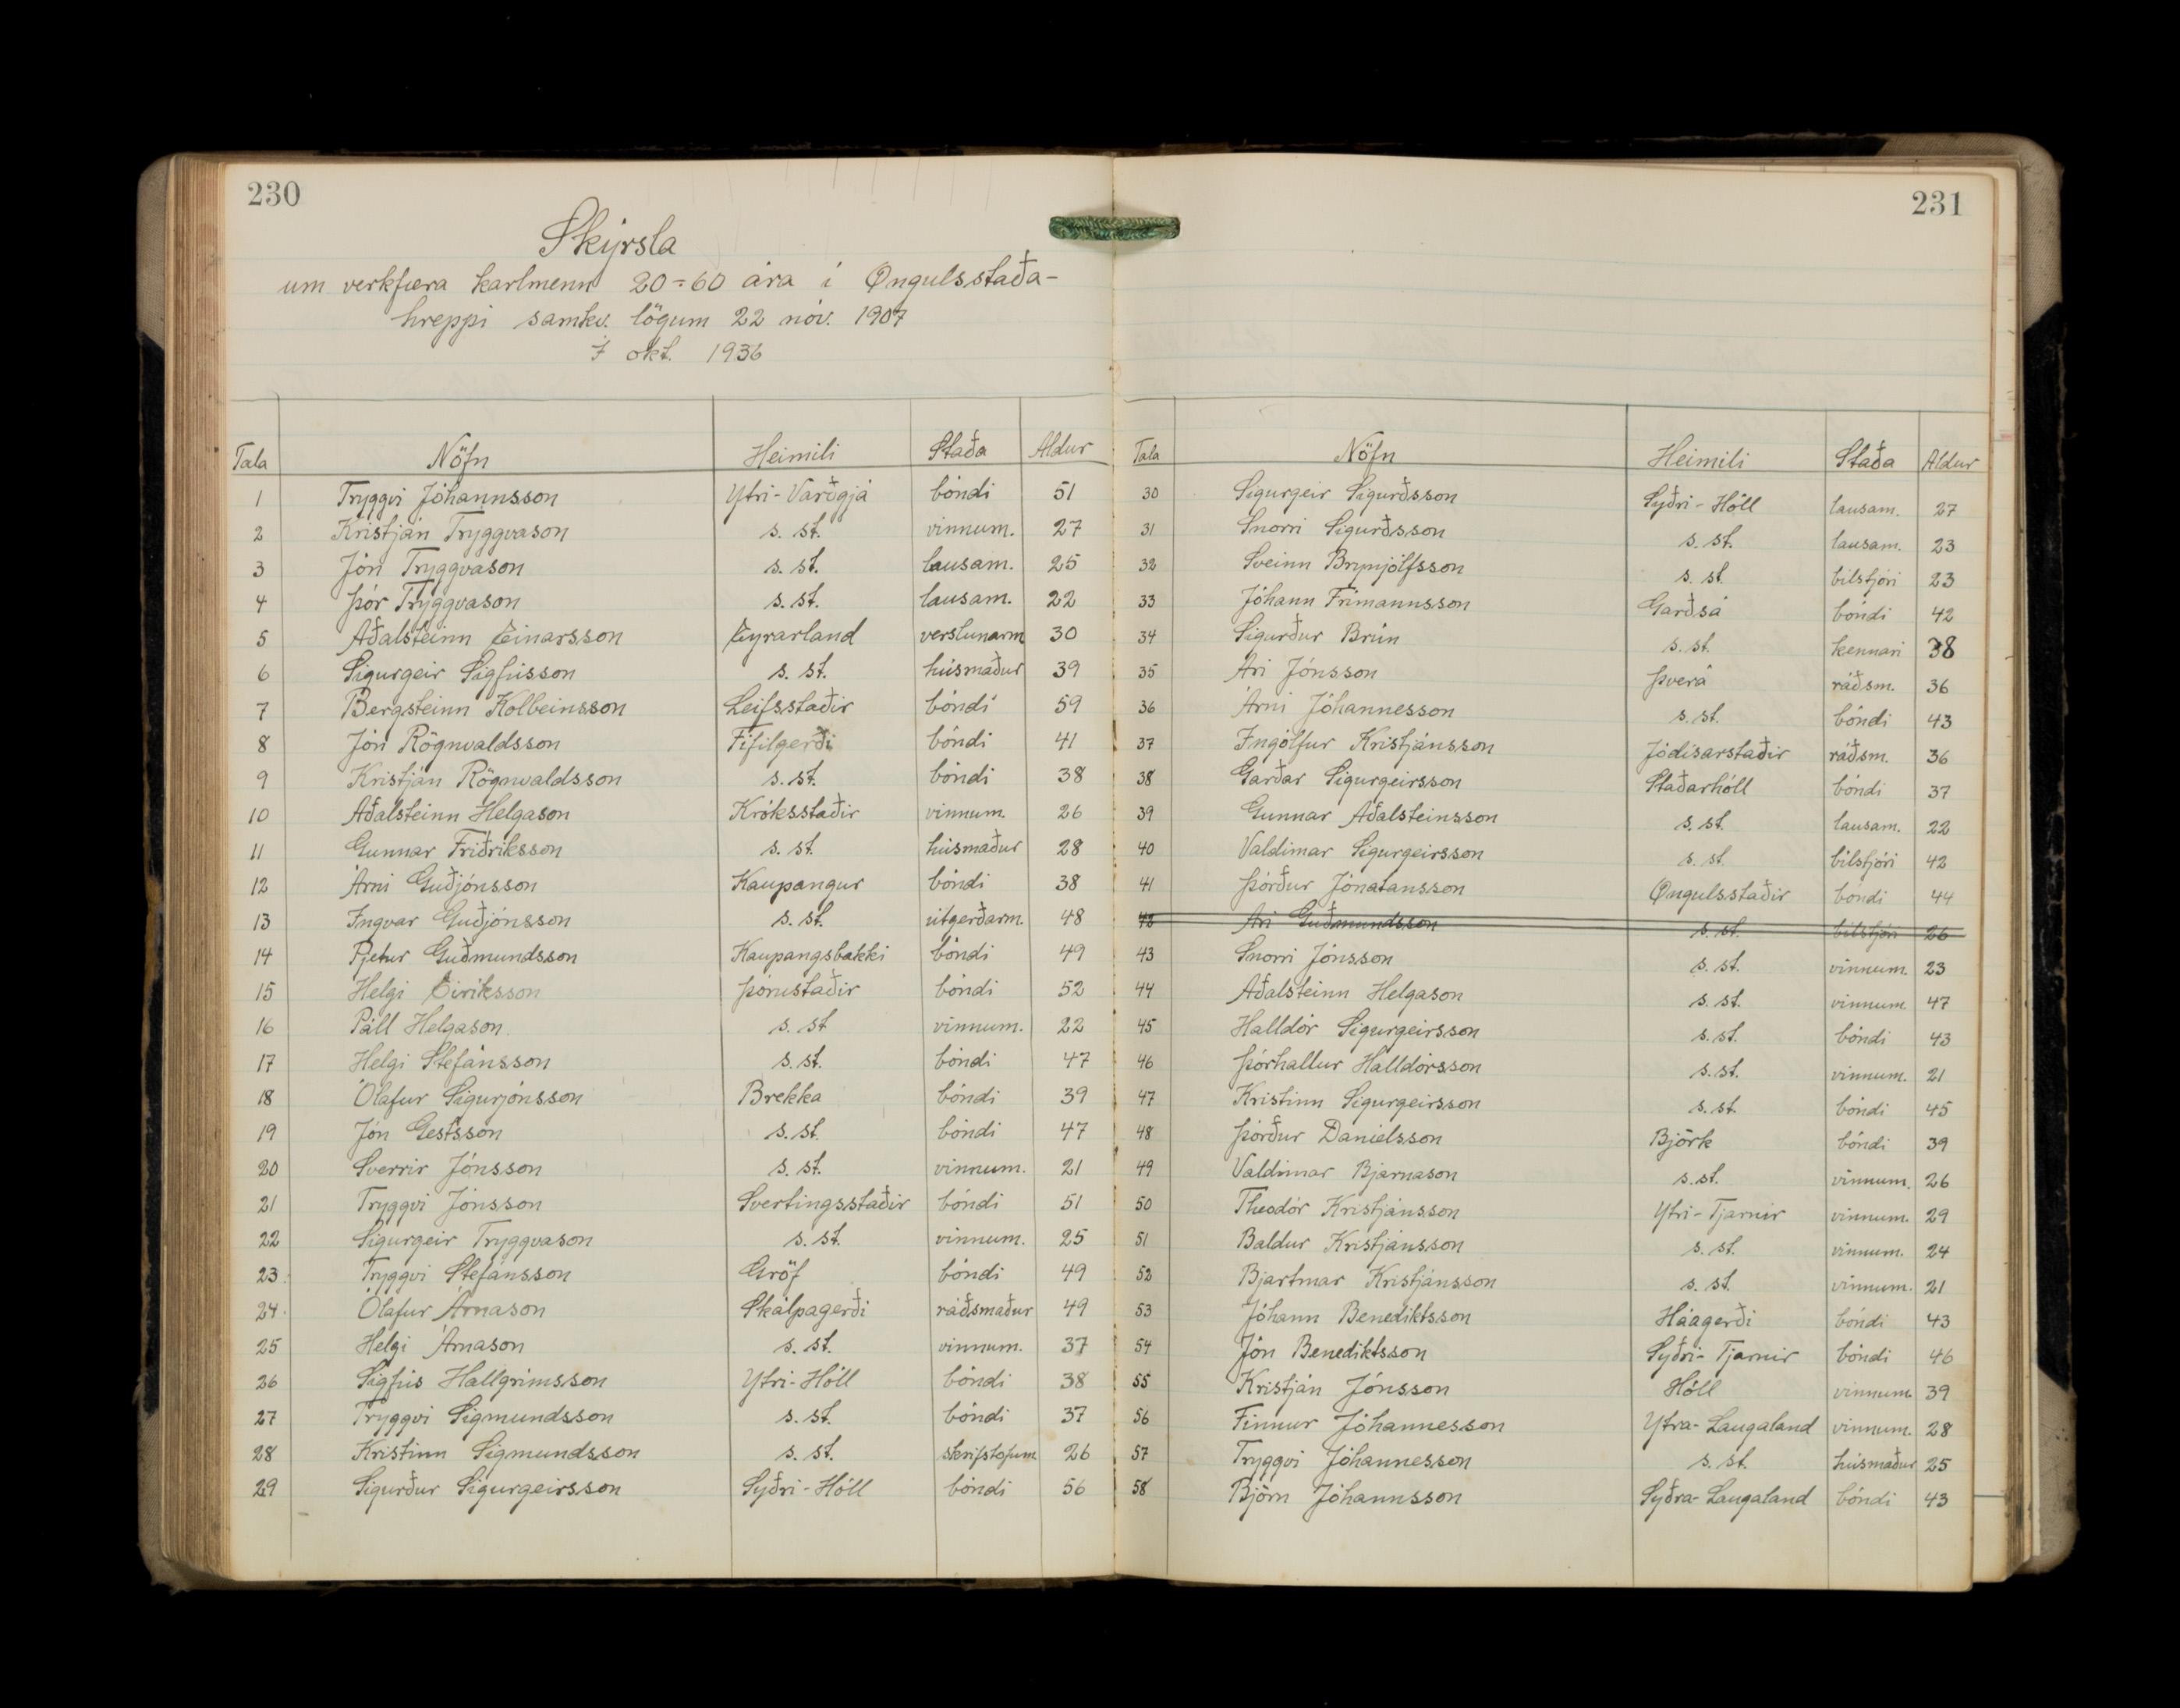 230
Skýrsla
um verkfæra karlmenn 20=60 ára í Öngulsstaða-
hreppi samkv. lögum 22 nóv. 1907
7 okt. 1936
Tala Nöfn Heimili Staða Aldur
1 Tryggvi Jóhannsson Ytri-Varðgjá bóndi 51
2 Kristján Tryggvason s. st. vinnum. 27
3 Jón Tryggvason s. st. lausam. 25
4 Þór Tryggvason s. st. lausam. 22
5 Aðalsteinn Einarsson Eyrarland verslunarm 30
6 Sigurgeir Sigfússon s. st. húsmaður 39
7 Bergsteinn Kolbeinsson Leifsstaðir bóndi 59
8 Jón Rögnvaldsson Fífilgerði bóndi 41
9 Kristján Rögnvaldsson s. st. bóndi 38
10 Aðalsteinn Helgason Króksstaðir vinnum. 26
11 Gunnar Friðriksson s. st. húsmaður 28
12 Árni Guðjónsson Kaupangur bóndi 38
13 Ingvar Guðjónsson s. st. útgerðarm. 48
14 Pjetur Guðmundsson Kaupangsbakki bóndi 49
15 Helgi Eiríksson Þórustaðir bóndi 52
16 Páll Helgason s. st vinnum. 22
17 Helgi Stefánsson s. st. bóndi 47
18 Ólafur Sigurjónsson Brekka bóndi 39
19 Jón Gestsson s. st. bóndi 47
20 Sverrir Jónsson s. st. vinnum. 21
21 Tryggvi Jónsson Svertingsstaðir bóndi 51
22 Sigurgeir Tryggvason s. st. vinnum. 25
23 Tryggvi Stefánsson Gröf bóndi 49
24 Ólafur Árnason Skálpagerði ráðsmaður 49
25 Helgi Árnason s. st. vinnum. 37
26 Sigfús Hallgrímsson Ytri-Hóll bóndi 38
27 Tryggvi Sigmundsson s. st. bóndi 37
28 Kristinn Sigmundsson s. st. skrifstofum. 26
29 Sigurður Sigurgeirsson Syðri-Hóll bóndi 56
231
Tala Nöfn Heimili Staða Aldur
30 Sigurgeir Sigurðsson Syðri-Hóll lausam. 27
31 Snorri Sigurðsson s. st. lausam. 23
32 Sveinn Brynjólfsson s. st. bílstjóri 23
33 Jóhann Frímannsson Garðsá bóndi 42
34 Sigurður Brún s. st. kennari 38
35 Ari Jónsson Þverá ráðsm. 36
36 Árni Jóhannesson s. st. bóndi 43
37 Ingólfur Kristjánsson Jódísarstaðir ráðsm. 36
38 Garðar Sigurgeirsson Staðarhóll bóndi 37
39 Gunnar Aðalsteinsson s. st. lausam. 22
40 Valdimar Sigurgeirsson s. st. bílstjóri 42
41 Þórður Jónatansson Öngulsstaðir bóndi 44
42 Ari Guðmundsson s. st. bílstjóri 26
43 Snorri Jónsson s. st. vinnum. 23
44 Aðalsteinn Helgason s. st. vinnum. 47
45 Halldór Sigurgeirsson s. st. bóndi 43
46 Þórhallur Halldórsson s. st. vinnum. 21
47 Kristinn Sigurgeirsson s. st. bóndi 45
48 Þórður Daníelsson Björk bóndi 39
49 Valdimar Bjarnason s. st. vinnum. 26
50 Theodór Kristjánsson Ytri-Tjarnir vinnum. 29
51 Baldur Kristjánsson s. st. vinnum. 24
52 Bjartmar Kristjánsson s. st. vinnum. 21
53 Jóhann Benediktsson Háagerði bóndi 43
54 Jón Benediktsson Syðri-Tjarnir bóndi 46
55 Kristján Jónsson Hóll vinnum. 39
56 Finnur Jóhannesson Ytra-Laugaland vinnum. 28
57 Tryggvi Jóhannesson s. st. húsmaður 25
58 Björn Jóhannsson Syðra-Laugaland bóndi 43